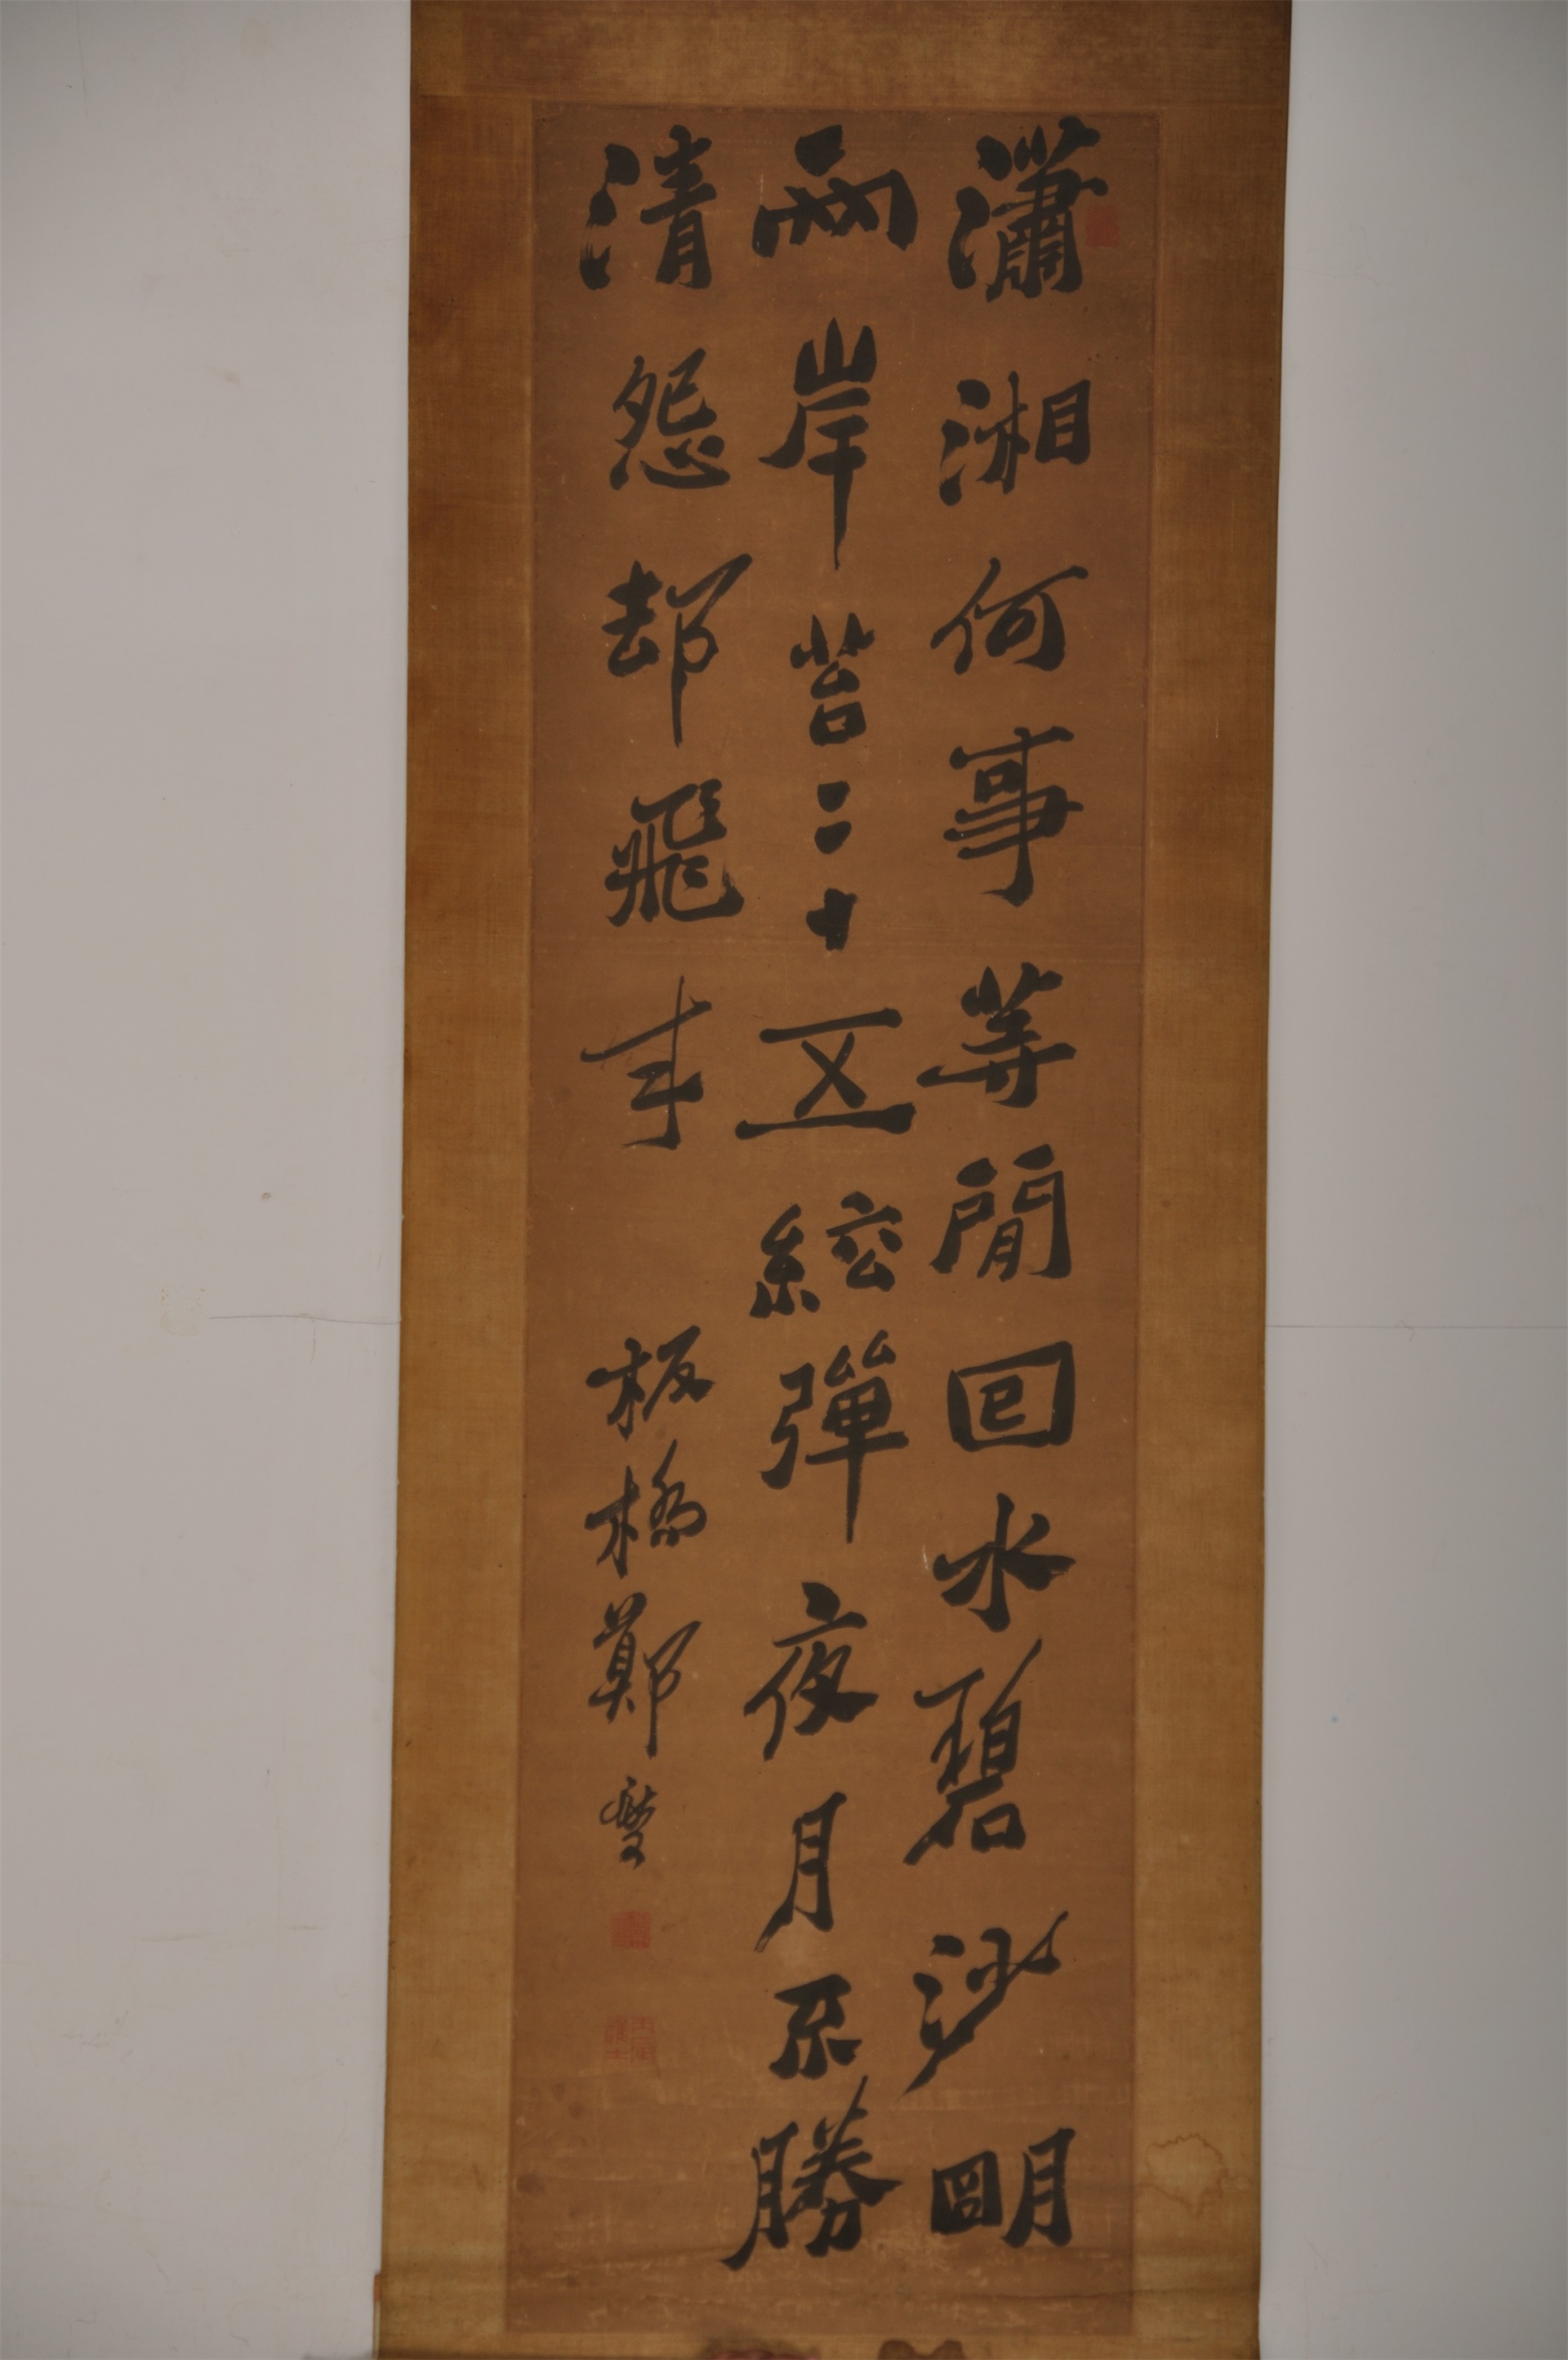 瀟湘何事等閒回水碧沙明
兩岸苔二十五絃彈夜月不勝
清怨却飛來
板橋鄭燮